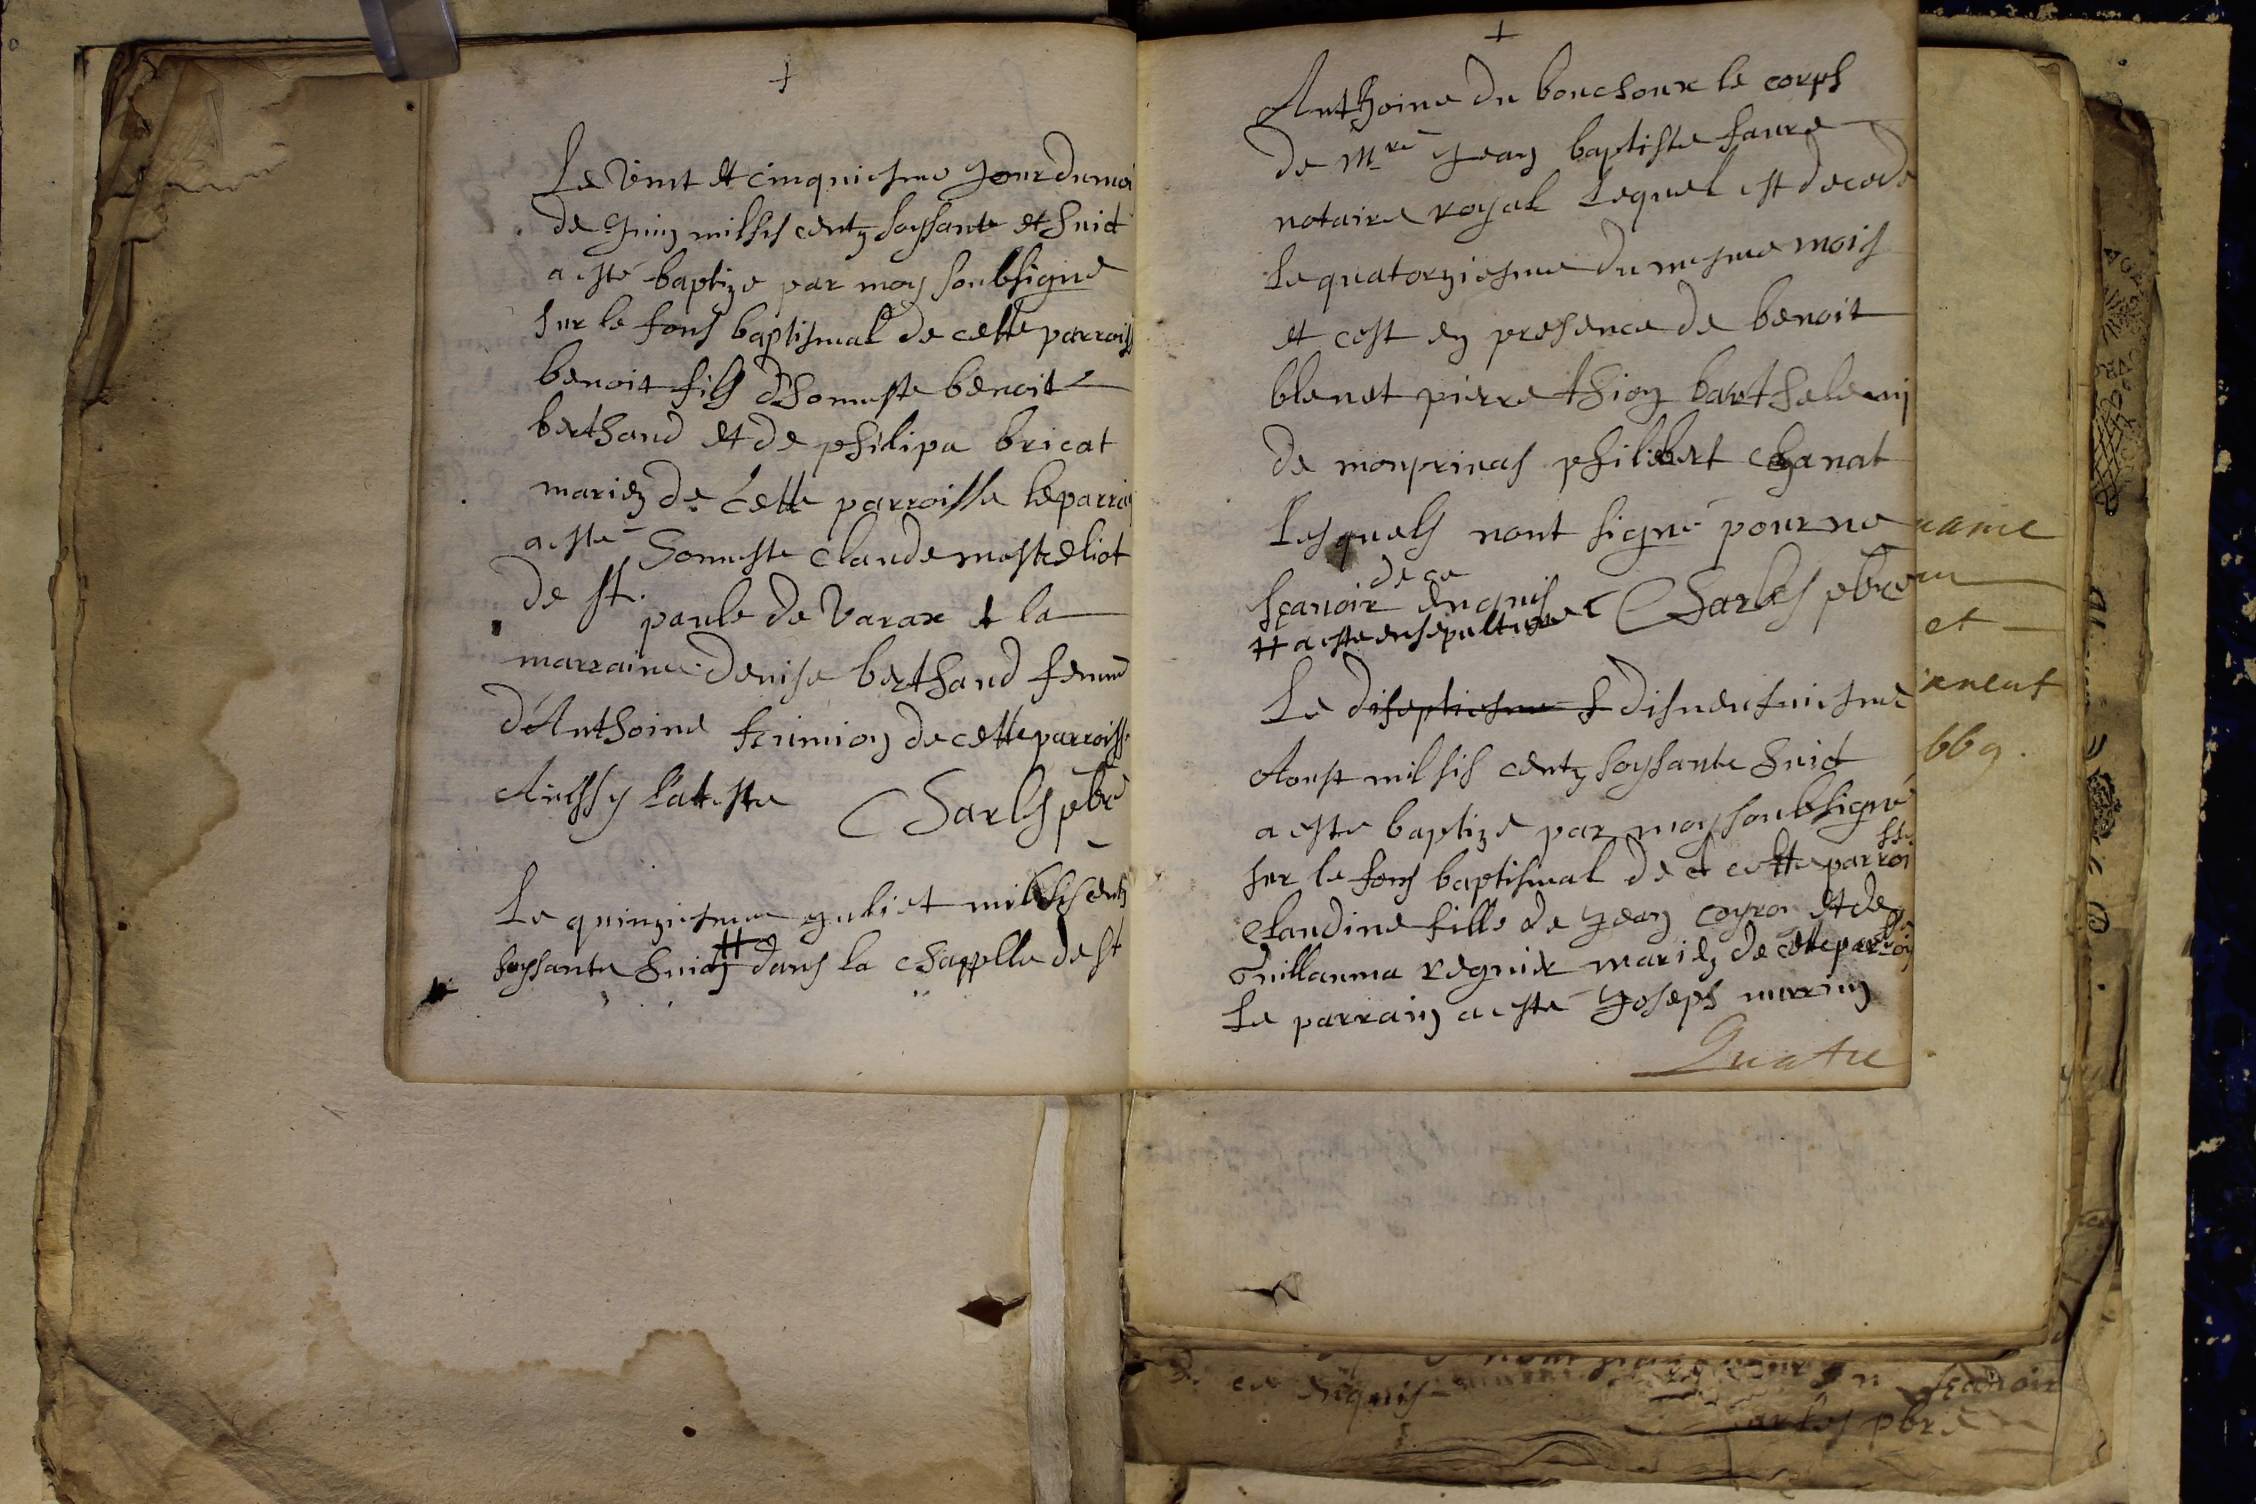 +
Le Vint et cinquiesme Jour du moi
de Juin mil sis centz soyssante et huict
a esté baptize par moy soubsigne
sur le fons baptismal de cette parroiss
benoit fils d'honneste benoit
berthaud et de philipa bricat
mariez de Cette parroisse le parrain
a esté honneste Claude mestreliot
de st. paule de Varax et la
marraine denise berthaud femme
d'Anthoine de cette parroisse
Ainssy l'atteste Charles pbre
Le quinziesme juliet mil sis centz
soyssante huict # dans la chappelle de st
+
Anthoine du bouchoux le corps
de Mre Jean baptiste faure
notaire royal Lequel est decede
Le quatorziesme du mesme mois
et c'est en presence de benoit
blenet pierre thion barthelemy
de monprinas philibert Chanat
Lesquels n'ont signé pour ne
sçavoir de ce enquis Charles pbre
# a esté ensepulturé
Le diseptiesme disneufuiesme
Aoust mil sis centz soyssante huict
a este baptize par moy soubsigné
sur le fons baptismal de cette parroisse
Claudine fille de Jean coyron et de
Guillauma regnier mariez de cette parroiss
Le parrain a esté Joseph
Quatre
et
669.
ce enquis sçavoir
Charles pbre